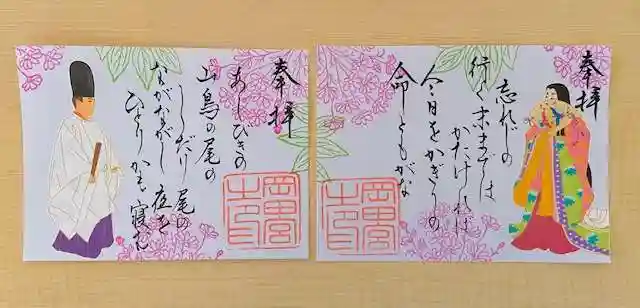 奉拝
忘れじの
行く末までは
かたければ
今日をかぎりの
命ともがな
岡田宮
之印
奉拝
あしびきの
山鳥の尾の
しだり尾の
ながながし夜を
ひとりかも寝む
岡田宮
之印